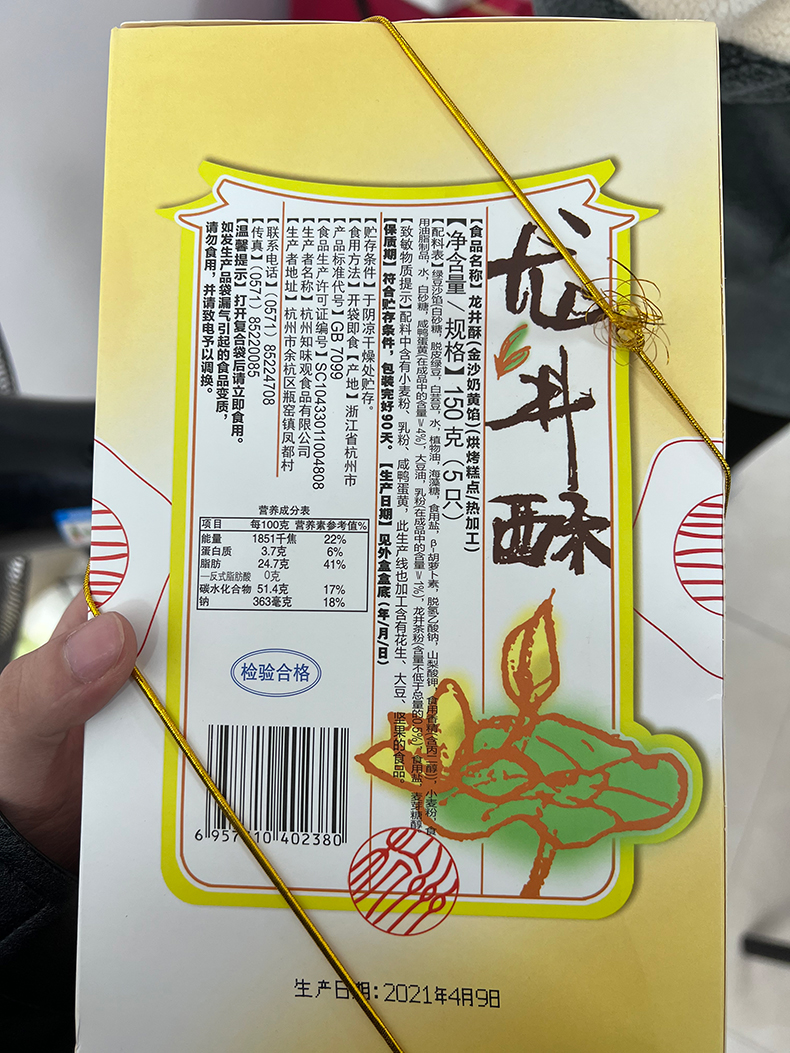 龙井酥
【食品名称】龙井酥(金沙奶黄馅)(烘烤糕点(热加工)
【净含量/规格】150克(5只)
【配料表】绿豆沙馅(白砂糖，脱皮绿豆，白芸豆，水，植物油，海藻糖，食用盐，β-胡萝卜素，脱氢乙酸钠，山梨酸钾，食用香精(含丙二醇))，小麦粉，食
用油脂制品，水，白砂糖，咸鸭蛋黄(在成品中的含量≥4%)，大豆油，乳粉(在成品中的含量≥1%)，龙井茶粉(含量不低于总量的0.6%)，食用盐，麦芽糖醇
【致敏物质提示】配料中含有小麦粉、乳粉、咸鸭蛋黄，此生产线也加工含有花生、大豆、坚果的食品。
【保质期】符合贮存条件，包装完好90天。【生产日期】见外盒盒底(年/月/日)
【贮存条件】于阴凉干燥处贮存。
【食用方法】开袋即食【产地】浙江省杭州市
【产品标准代号】GB 7099
【食品生产许可证编号】SC10433011004808
【生产者名称】杭州知味观食品有限公司
【生产者地址】杭州市余杭区瓶窑镇凤都村
【联系电话】(0571)85224708
【传真】(0571)85220085
【温馨提示】打开复合袋后请立即食用。
如发生产品袋漏气引起的食品变质，
请勿食用，并请致电予以调换。
营养成分表
项目 每100克 营养素参考值%
能量 1851千焦 22%
蛋白质 3.7克 6%
脂肪 24.7克 41%
—反式脂肪酸 0克
碳水化合物 51.4克 17%
钠 363毫克 18%
检验合格
6 957 10 402380
生产日期:2021年4月9日